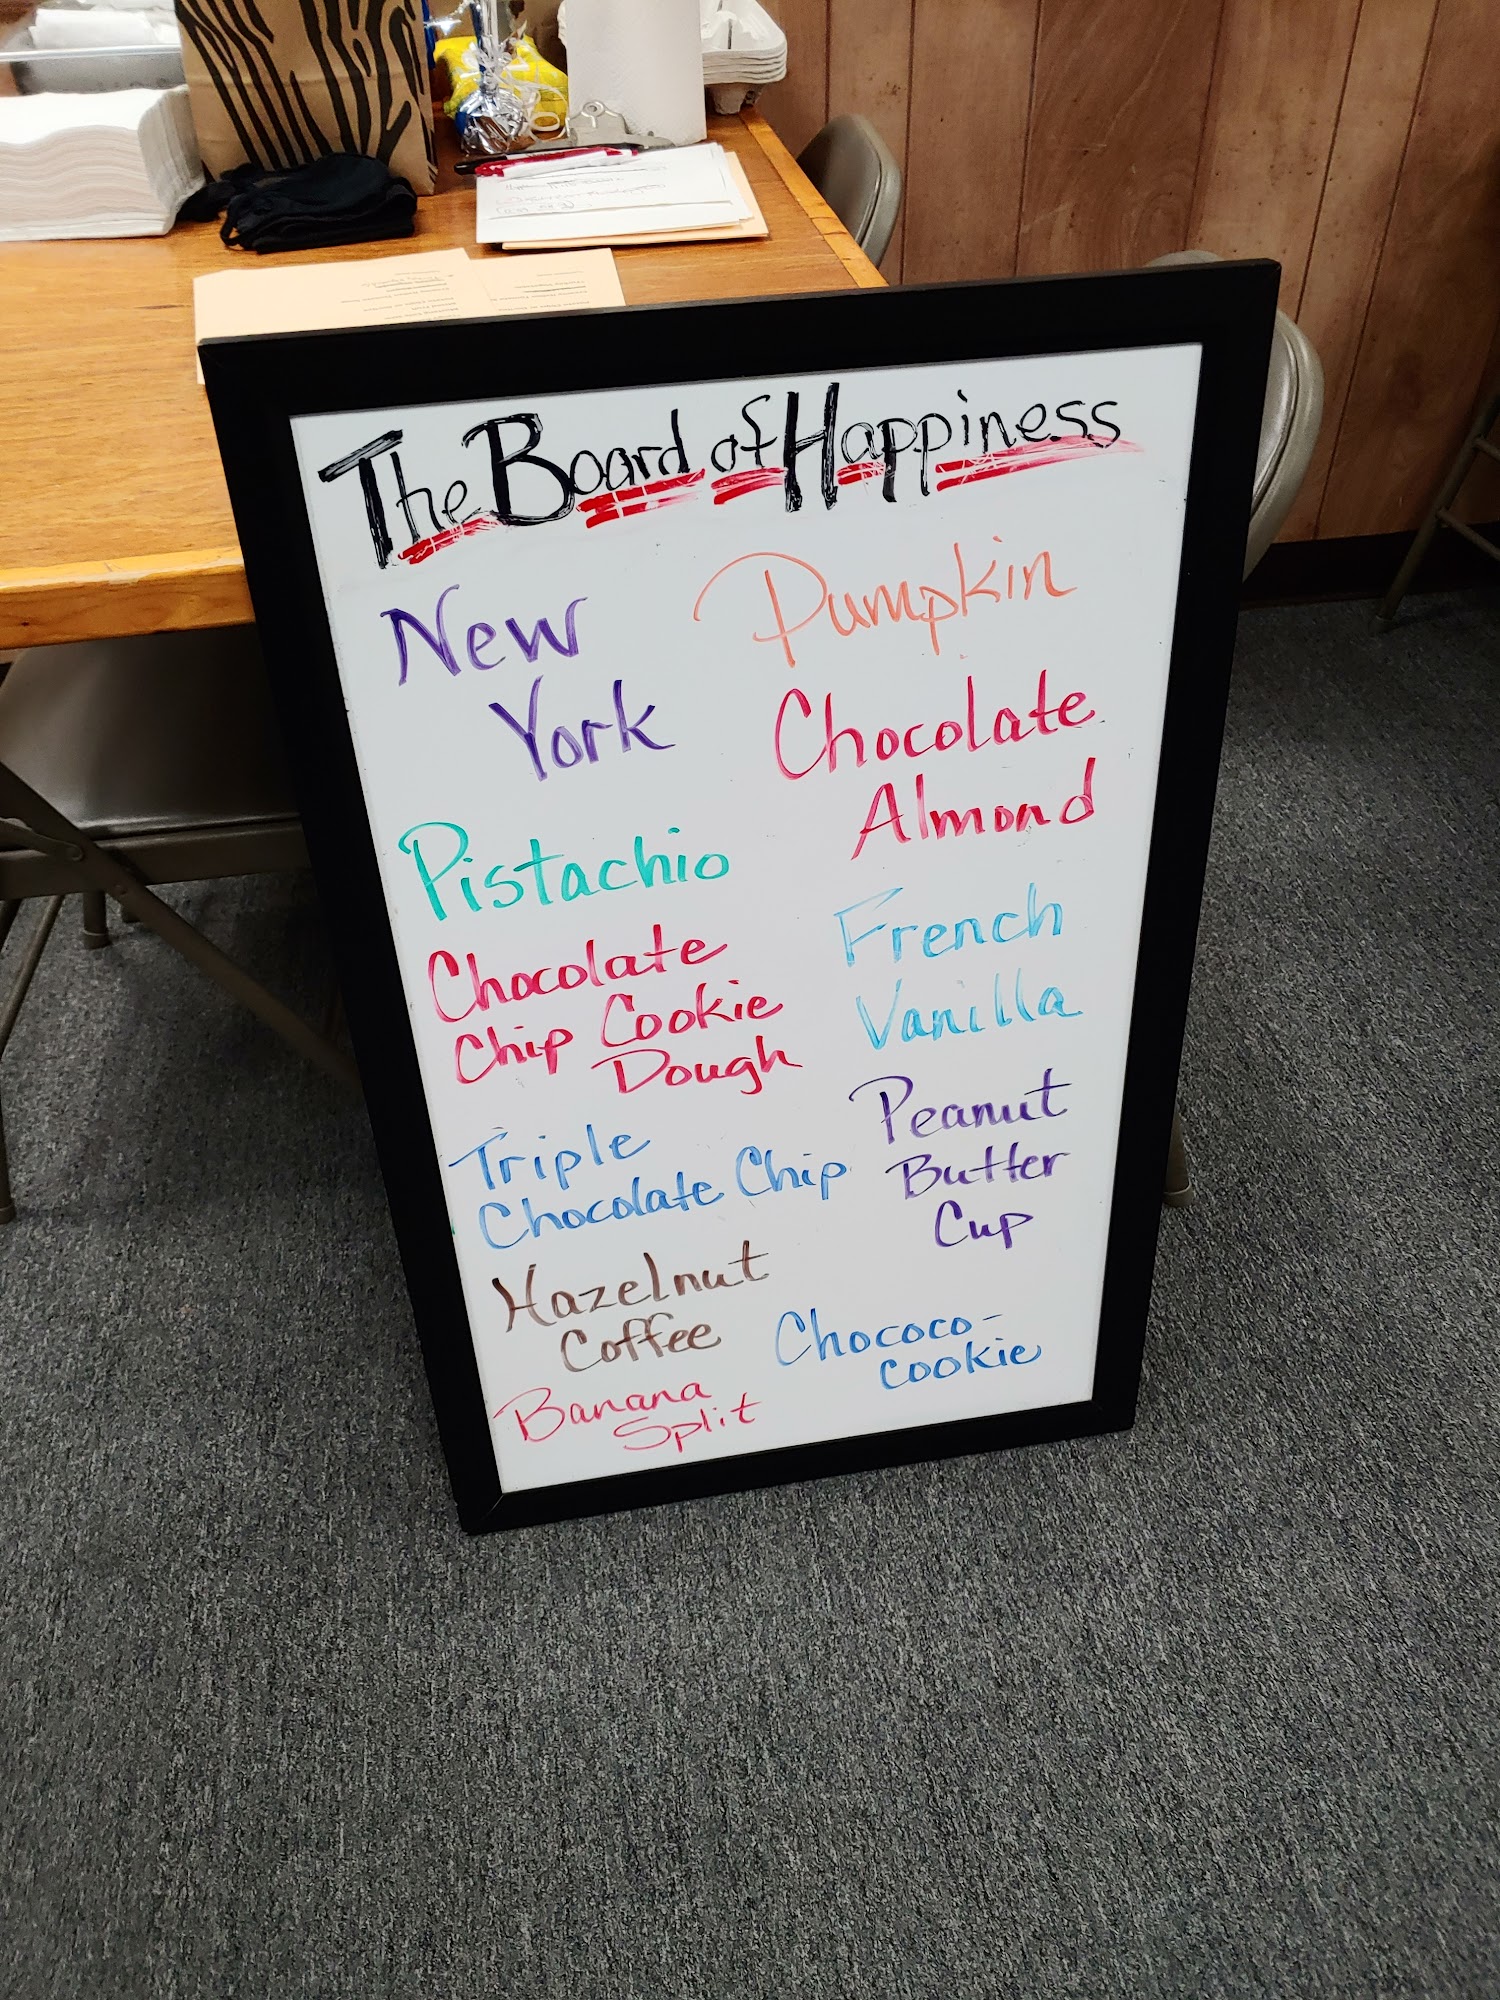 The Board of Happiness
New
York
Pistachio
Chocolate
Chip Cookie
Dough
Triple
Chocolate Chip
Hazelnut
Coffee
Banana
Split
Pumpkin
Chocolate
Almond
French
Vanilla
Peanut
Butter
Cup
Chococo-
cookie